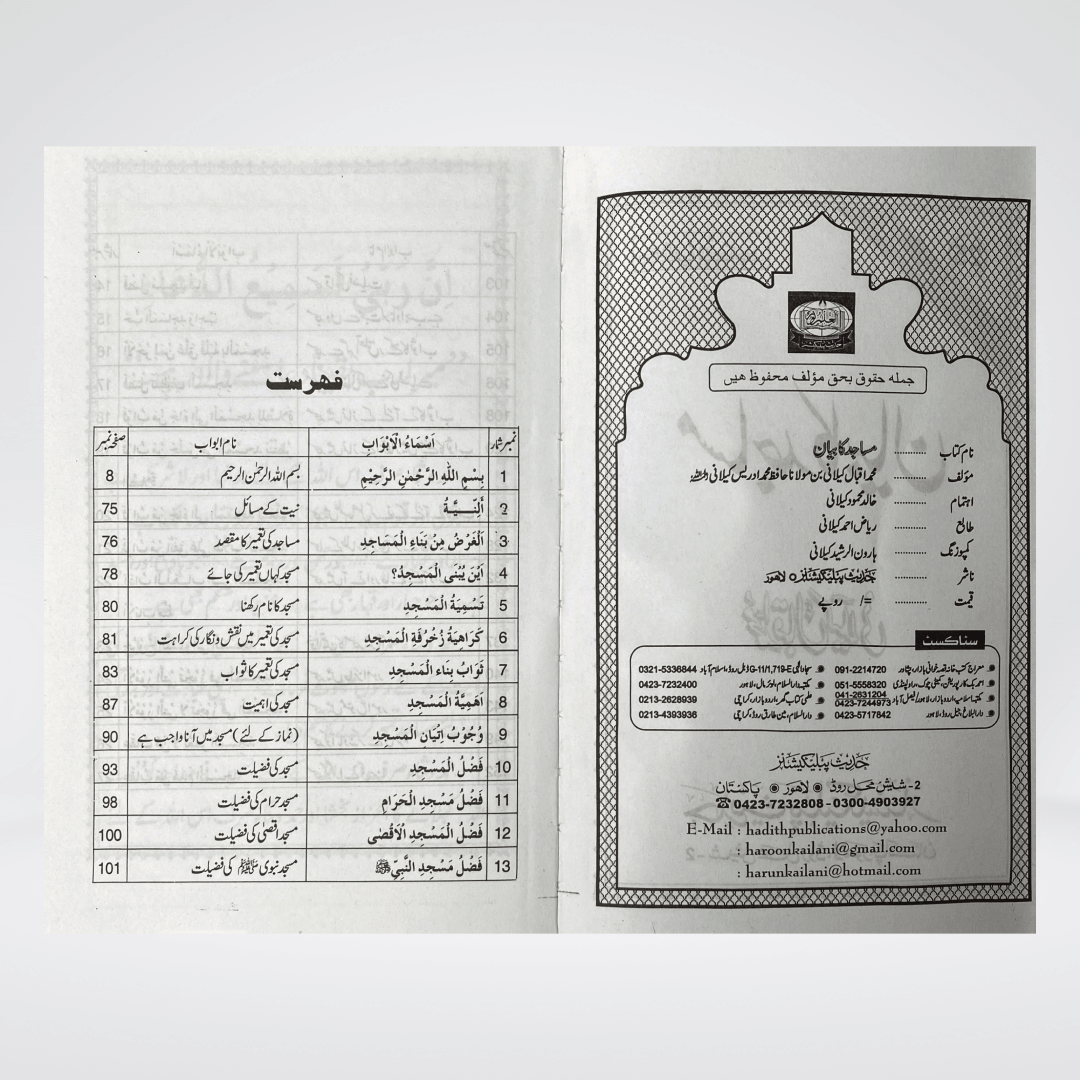 جمله حقوق بحق مؤلف محفوظ هیں
نام کتاب ............ مساجد کا بیان
مؤلف ............ محمد اقبال کیلانی بن مولانا حافظ محمد ادریس کیلانی رحمہ اللہ
اہتمام ............ خالد محمود کیلانی
طابع ............ ریاض احمد کیلانی
کمپوزنگ ............ ہارون الرشید کیلانی
ناشر ............ حدیث پبلیکیشنز لاهور
قیمت ............ =/ روپے
سٹاکسٹ
معراج کتب خانہ قصہ خوانی بازار، پشاور 091-2214720
احمد بک کارپوریشن، کمیٹی چوک، راولپنڈی 051-5558320
مکتبہ اسلامیہ، اردو بازار، لاہور/فیصل آباد 041-2631204 0423-7244973
دارالبلاغ، لاہور 0423-5717842
0321-5336844 G-11/1,719-E اسلام آباد
مکتبہ دارالسلام، لوئر مال، لاہور 0423-7232400
علمی کتاب گھر، اردو بازار، کراچی 0213-2628939
دارالسلام، مین طارق روڈ، کراچی 0213-4393936
حدیث پبلیکیشنز
2- شیش محل روڈ ◉ لاهور ◉ پاکستان
☎ 0423-7232808 - 0300-4903927
E-Mail : hadithpublications@yahoo.com
: haroonkailani@gmail.com
: harunkailani@hotmail.com
فهرست
نمبر شمار اَسْمَاءُ الْاَبْوَابِ نام ابواب صفحہ نمبر
1 بِسْمِ اللهِ الرَّحْمٰنِ الرَّحِيْمِ بسم اللہ الرحمٰن الرحیم 8
2 اَلنِّـيَّـةُ نیت کے مسائل 75
3 اَلْغَرْضُ مِنْ بِنَاءِ الْمَسَاجِدِ مساجد کی تعمیر کا مقصد 76
4 اَيْنَ يُبْنَى الْمَسْجِدُ؟ مسجد کہاں تعمیر کی جائے 78
5 تَسْمِيَةُ الْمَسْجِدِ مسجد کا نام رکھنا 80
6 كَرَاهِيَةُ زُخْرُفَةِ الْمَسْجِدِ مسجد کی تعمیر میں نقش و نگار کی کراہت 81
7 ثَوَابُ بِنَاءِ الْمَسْجِدِ مسجد کی تعمیر کا ثواب 83
8 اَهَمِيَّةُ الْمَسْجِدِ مسجد کی اہمیت 87
9 وُجُوْبُ اِتْيَانِ الْمَسْجِدِ (نماز کے لئے) مسجد میں آنا واجب ہے 90
10 فَضْلُ الْمَسْجِدِ مسجد کی فضیلت 93
11 فَضْلُ مَسْجِدِ الْحَرَامِ مسجد حرام کی فضیلت 98
12 فَضْلُ الْمَسْجِدِ الْاَقْصٰى مسجد اقصیٰ کی فضیلت 100
13 فَضْلُ مَسْجِدِ النَّبِيِّ ﷺ مسجد نبوی ﷺ کی فضیلت 101